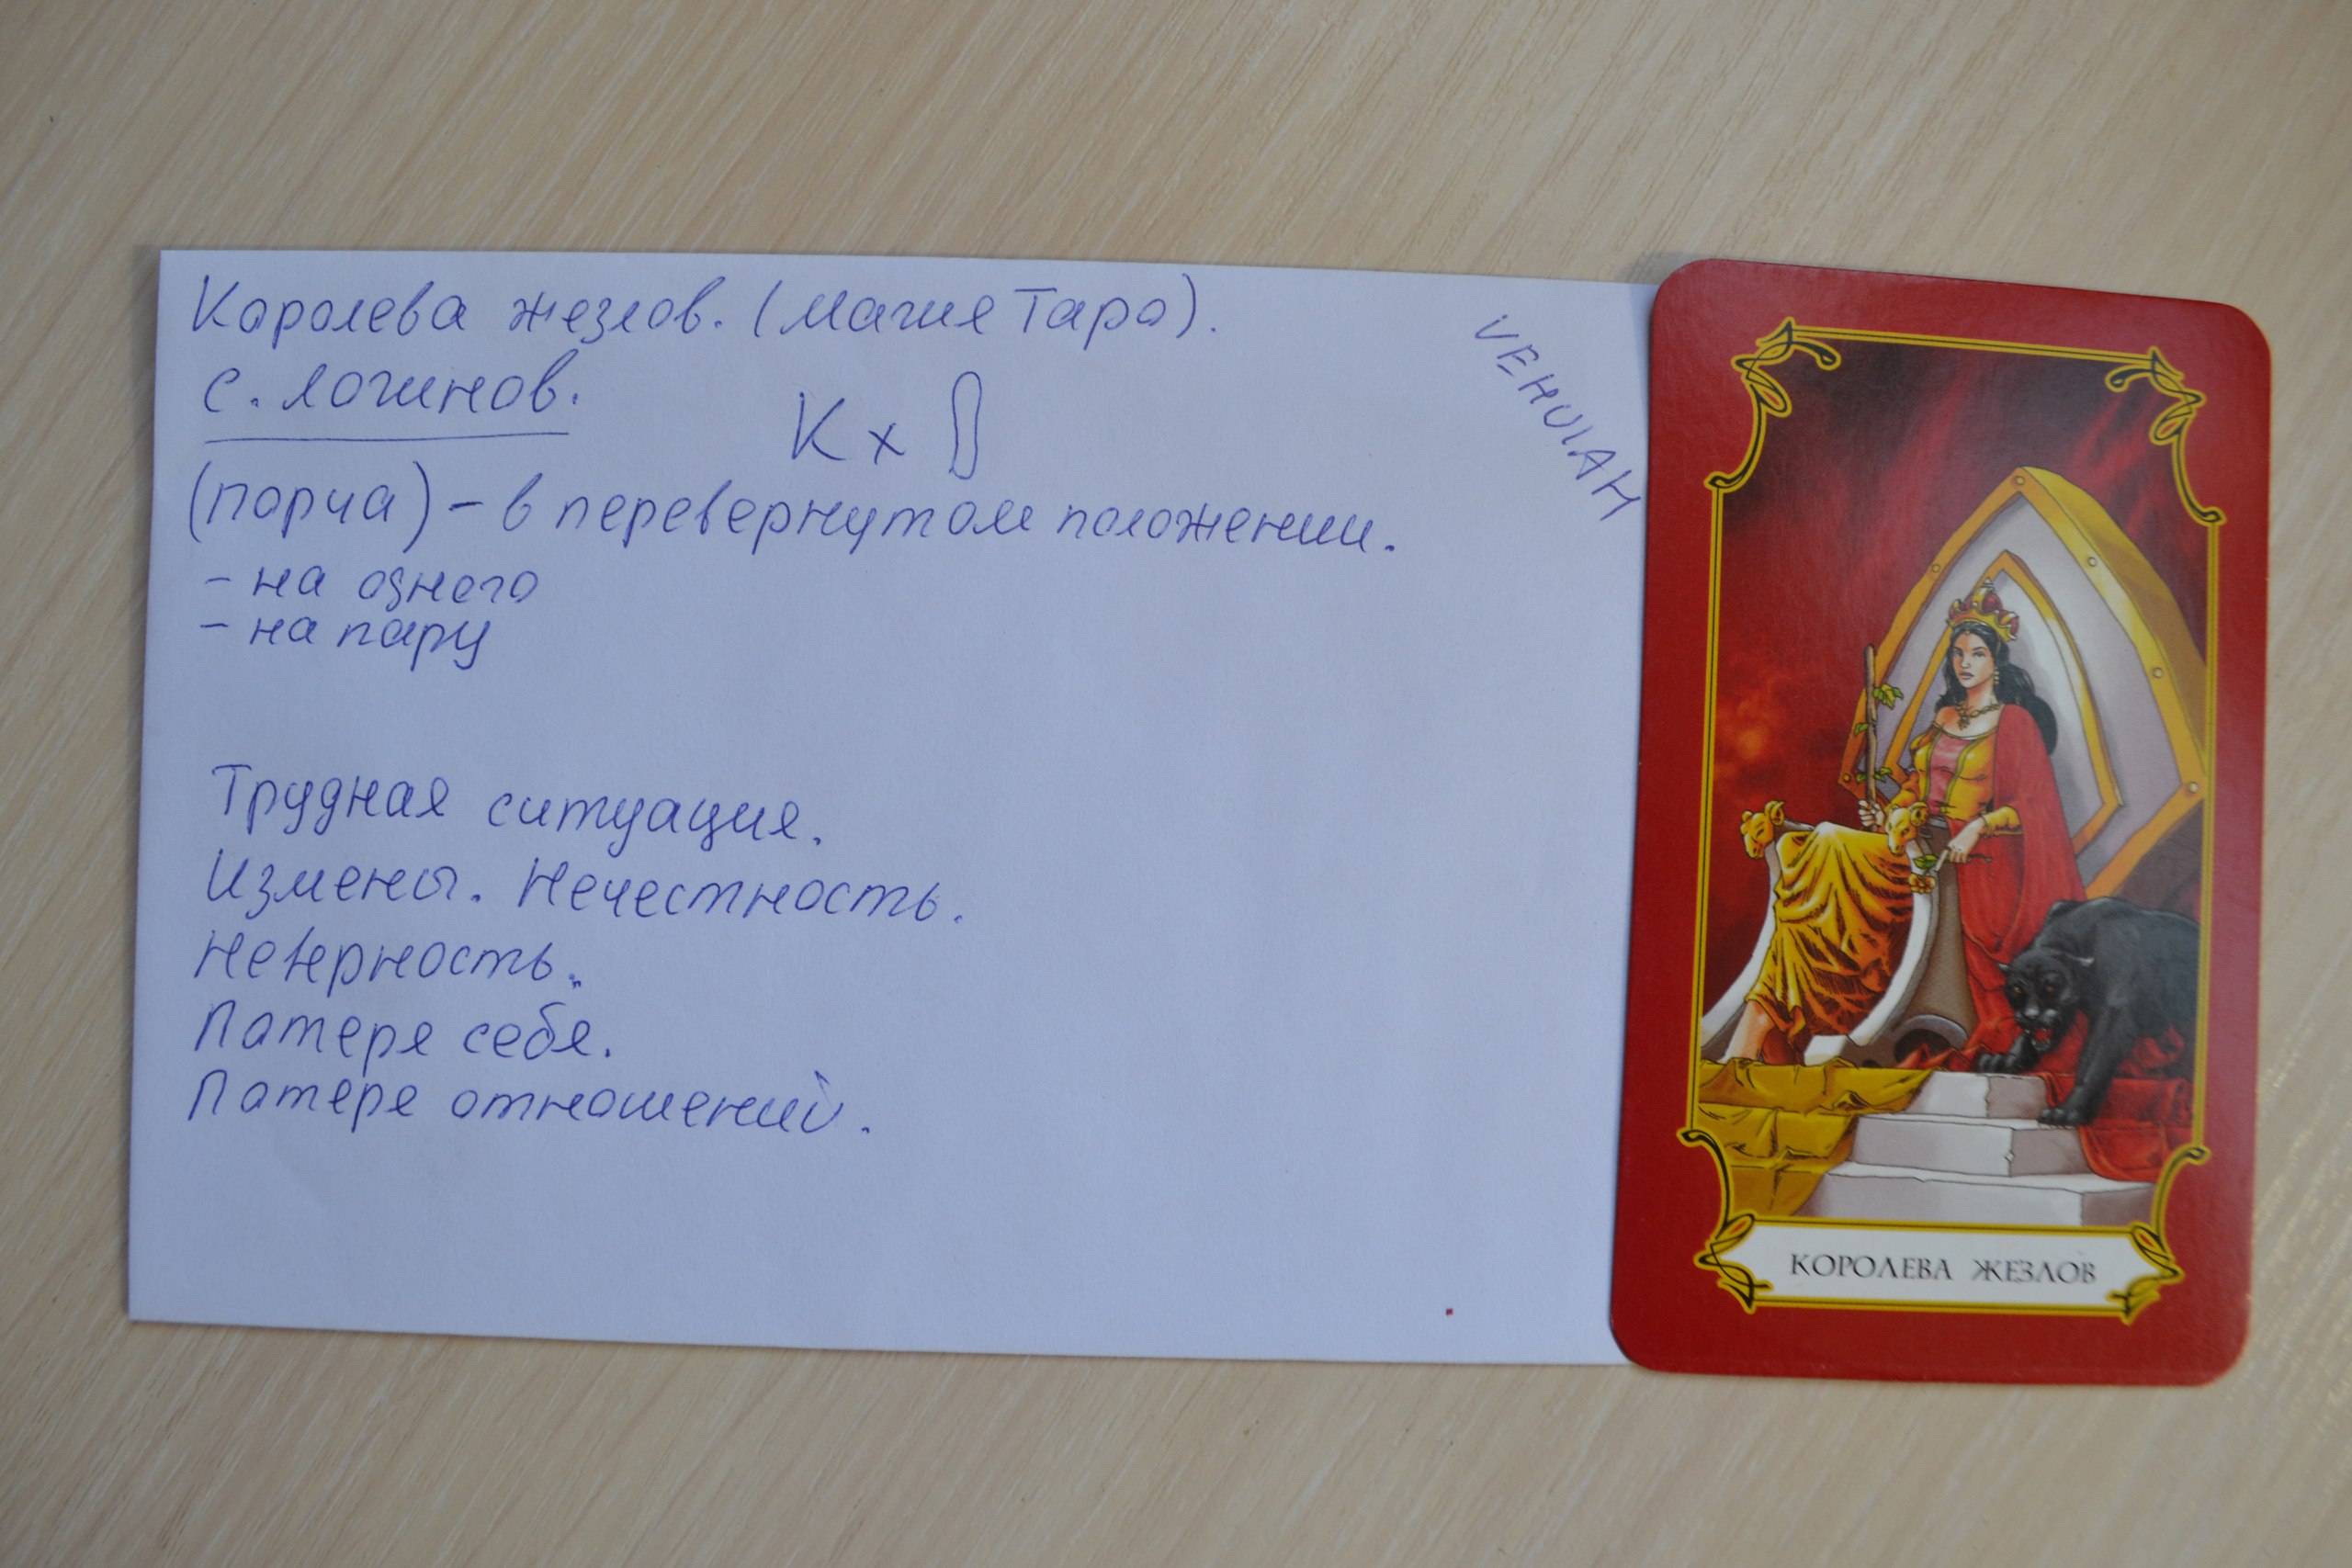 Королева жезлов. (Магия Таро).
С. Логинов.
К х
VEHUIAH
(порча) - в перевернутом положении.
- на одного
- на пару
Трудная ситуация.
Измены. Нечестность.
Неверность.
Потеря себя.
Потеря отношений.
КОРОЛЕВА ЖЕЗЛОВ